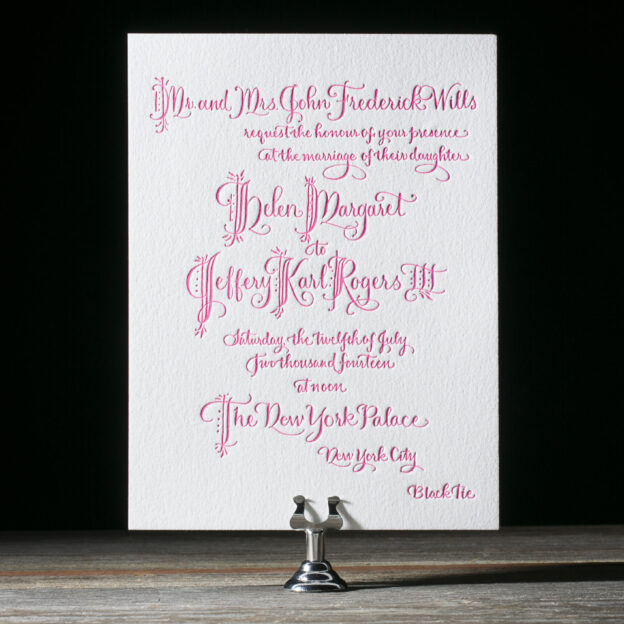 Mr. and Mrs. John Frederick Wills
request the honour of your presence
at the marriage of their daughter
Helen Margaret
to
Jeffery Karl Rogers III
Saturday, the twelfth of July
Two thousand fourteen
at noon
The New York Palace
New York City
Black Tie